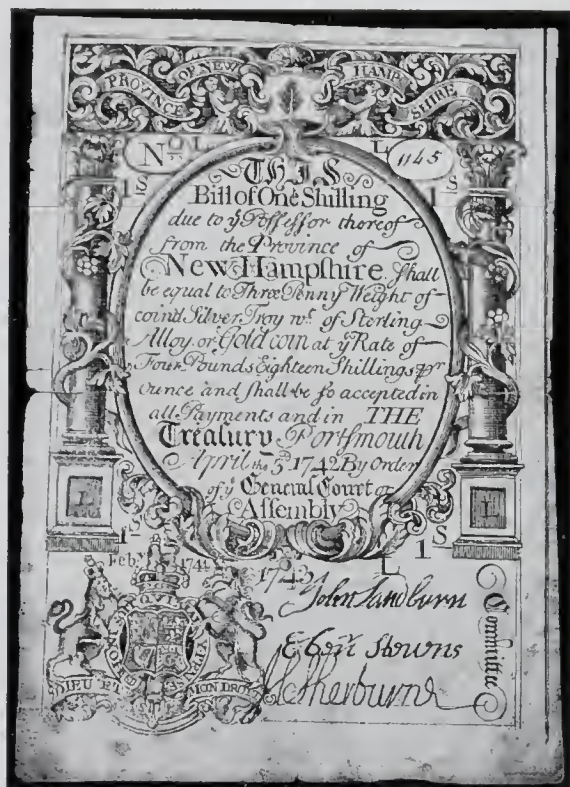 PROVINCE OF NEW HAMP SHIRE
No L L 1145
1S 1S
THIS
Bill of One Shilling
due to ye Possessor thereof
from the Province of
New Hampshire shall
be equal to Three Penny Weight of
coind Silver Troy wt. of Sterling
Alloy or Gold coin at ye Rate of
Four Pounds Eighteen Shillings pr
ounce and shall be so accepted in
all Payments and in THE
Treasury Portsmouth
April the 3d. 1742 By Order
of ye General Court or
Assembly
I I
1S 1S
Feb. 1744 1743 L
John Sandburn
Eben Stevens
Sherburne
Committee
DIEU ET MON DROIT